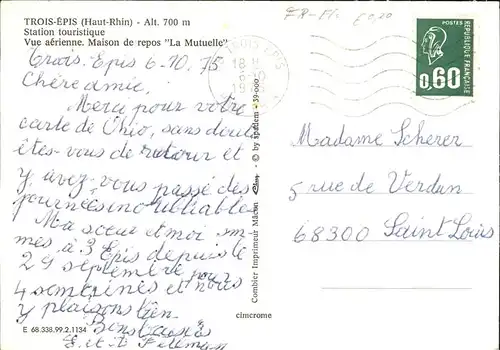 TROIS-ÉPIS (Haut-Rhin) - Alt. 700 m
Station touristique
Vue aérienne. Maison de repos "La Mutuelle"
Trois. Epis 6-10. 75
Chère amie.
Merci pour votre
carte de Ohio, sans doute
êtes-vous de retour et
y avez-vous passé des
journées inoubliables
Ma sœur et moi som-
mes à 3 Epis depuis le
29 septembre pour
4 semaines et nous
y plaisons bien.
E 68.338.99.2.1134
TROIS EPIS
18 H
Combier Imprimeur Mâcon
© by spadem - 39-000
cimcrome
POSTES
RÉPUBLIQUE FRANÇAISE
0,60
Madame Scherer
5 rue de Verdun
68300 Saint Louis